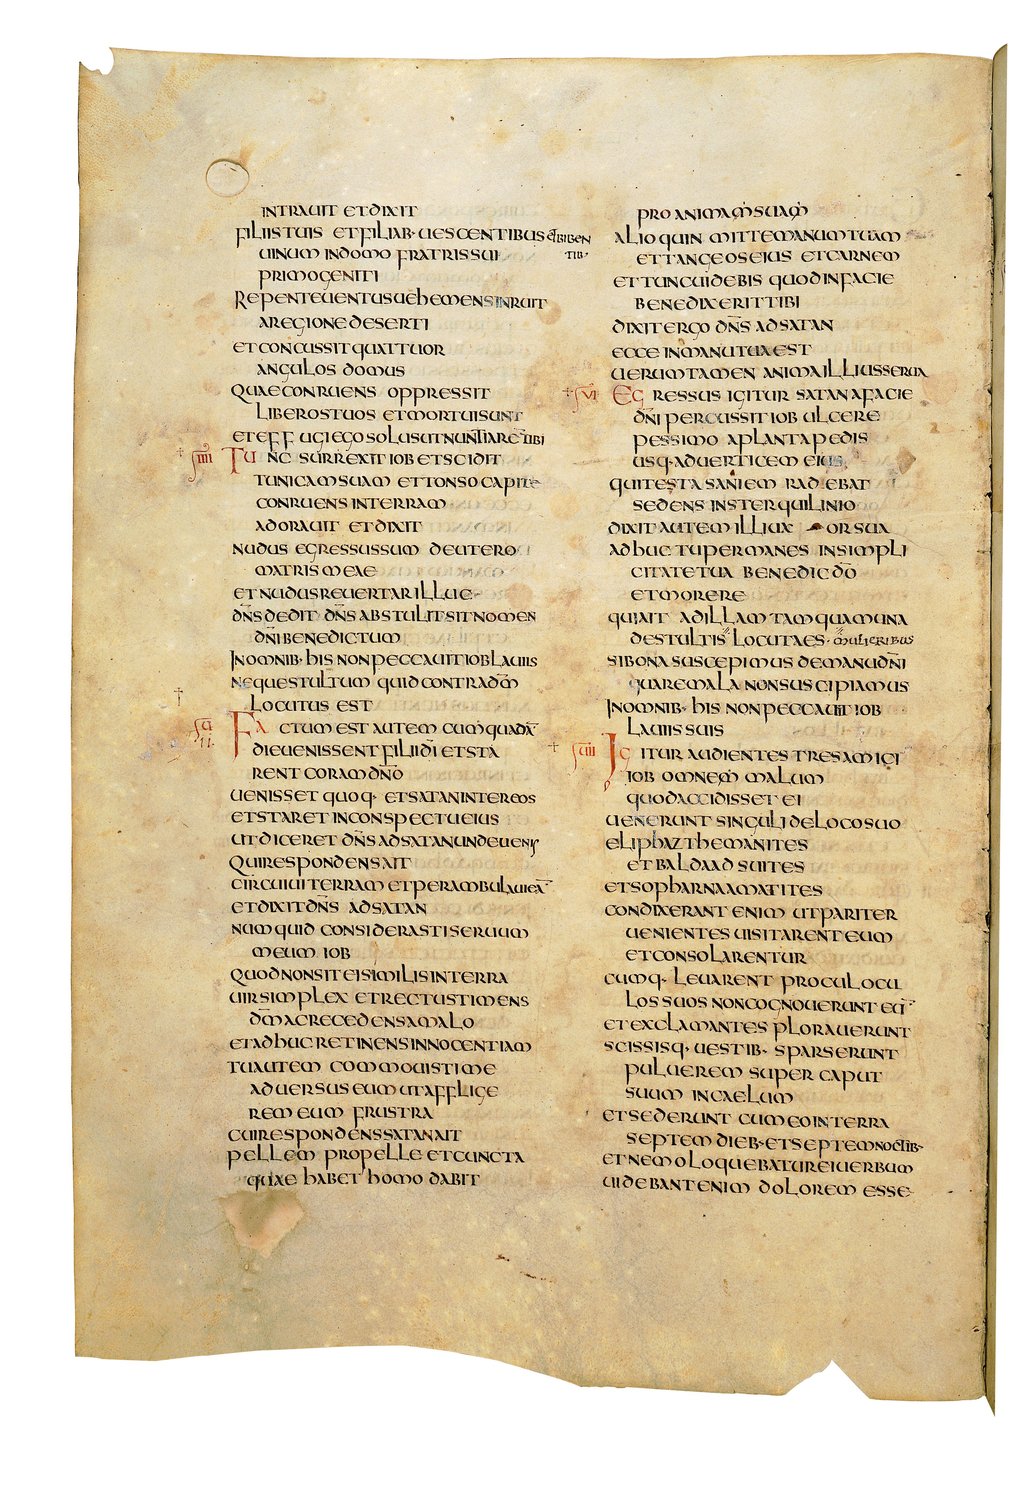 INTRAUIT ET DIXIT
FILIIS TUIS ET FILIAB· UESCENTIBUS ET BIBEN
TIB·
UINUM IN DOMO FRATRIS SUI
PRIMOGENITI
REPENTE UENTUS UEHEMENS INRUIT
A REGIONE DESERTI
ET CONCUSSIT QUATTUOR
ANGULOS DOMUS
QUAE CONRUENS OPPRESSIT
LIBEROS TUOS ET MORTUI SUNT
ET EFFUGI EGO SOLUS UT NUNTIARE TIBI
TUNC SURREXIT IOB ET SCIDIT
TUNICAM SUAM ET TONSO CAPITE
CONRUENS IN TERRAM
ADORAUIT ET DIXIT
NUDUS EGRESSUS SUM DE UTERO
MATRIS MEAE
ET NUDUS REUERTAR ILLUC
DN̄S DEDIT DN̄S ABSTULIT SIT NOMEN
DN̄I BENEDICTUM
IN OMNIB· HIS NON PECCAUIT IOB LABIIS
NEQUE STULTUM QUID CONTRA DM̄
LOCUTUS EST
FACTUM EST AUTEM CUM QUADĀ
DIE UENISSENT FILII DĪ ET STA
RENT CORAM DN̄O
UENISSET QUOQ· ET SATAN INTER EOS
ET STARET IN CONSPECTU EIUS
UT DICERET DN̄S AD SATAN UNDE UENIS
QUI RESPONDENS AIT
CIRCUIUI TERRAM ET PERAMBULAUI EĀ
ET DIXIT DN̄S AD SATAN
NUMQUID CONSIDERASTI SERUUM
MEUM IOB
QUOD NON SIT EI SIMILIS IN TERRA
UIR SIMPLEX ET RECTUS TIMENS
DM̄ AC RECEDENS A MALO
ET ADHUC RETINENS INNOCENTIAM
TU AUTEM COMMOUISTI ME
ADUERSUS EUM UT AFFLIGE
REM EUM FRUSTRA
CUI RESPONDENS SATAN AIT
PELLEM PRO PELLE ET CUNCTA
QUAE HABET HOMO DABIT
PRO ANIMA SUA
ALIOQUIN MITTE MANUM TUAM
ET TANGE OS EIUS ET CARNEM
ET TUNC UIDEBIS QUOD IN FACIE
BENEDIXERIT TIBI
DIXIT ERGO DN̄S AD SATAN
ECCE IN MANU TUA EST
UERUMTAMEN ANIMA ILLIUS SERUA
UI EGRESSUS IGITUR SATAN A FACIE
DN̄I PERCUSSIT IOB ULCERE
PESSIMO A PLANTA PEDIS
USQ· AD UERTICEM EIUS
QUI TESTA SANIEM RADEBAT
SEDENS IN STERQUILINIO
DIXIT AUTEM ILLI UXOR SUA
ADHUC TU PERMANES IN SIMPLI
CITATE TUA BENEDIC DŌ
ET MORERE
QUI AIT AD ILLAM TAMQUAM UNA
DE STULTIS LOCUTA ES· MULIERIBUS
SI BONA SUSCEPIMUS DE MANU DN̄I
QUARE MALA NON SUSCIPIAMUS
IN OMNIB· HIS NON PECCAUIT IOB
LABIIS SUIS
IGITUR AUDIENTES TRES AMICI
IOB OMNEM MALUM
QUOD ACCIDISSET EI
UENERUNT SINGULI DE LOCO SUO
ELIPHAZ THEMANITES
ET BALDAAD SUITES
ET SOPHAR NAAMATITES
CONDIXERANT ENIM UT PARITER
UENIENTES UISITARENT EUM
ET CONSOLARENTUR
CUMQ· LEUARENT PROCUL OCU
LOS SUOS NON COGNOUERUNT EŪ
ET EXCLAMANTES PLORAUERUNT
SCISSISQ· UESTIB· SPARSERUNT
PULUEREM SUPER CAPUT
SUUM IN CAELUM
ET SEDERUNT CUM EO IN TERRA
SEPTEM DIEB· ET SEPTEM NOCTIB·
ET NEMO LOQUEBATUR EI UERBUM
UIDEBANT ENIM DOLOREM ESSE